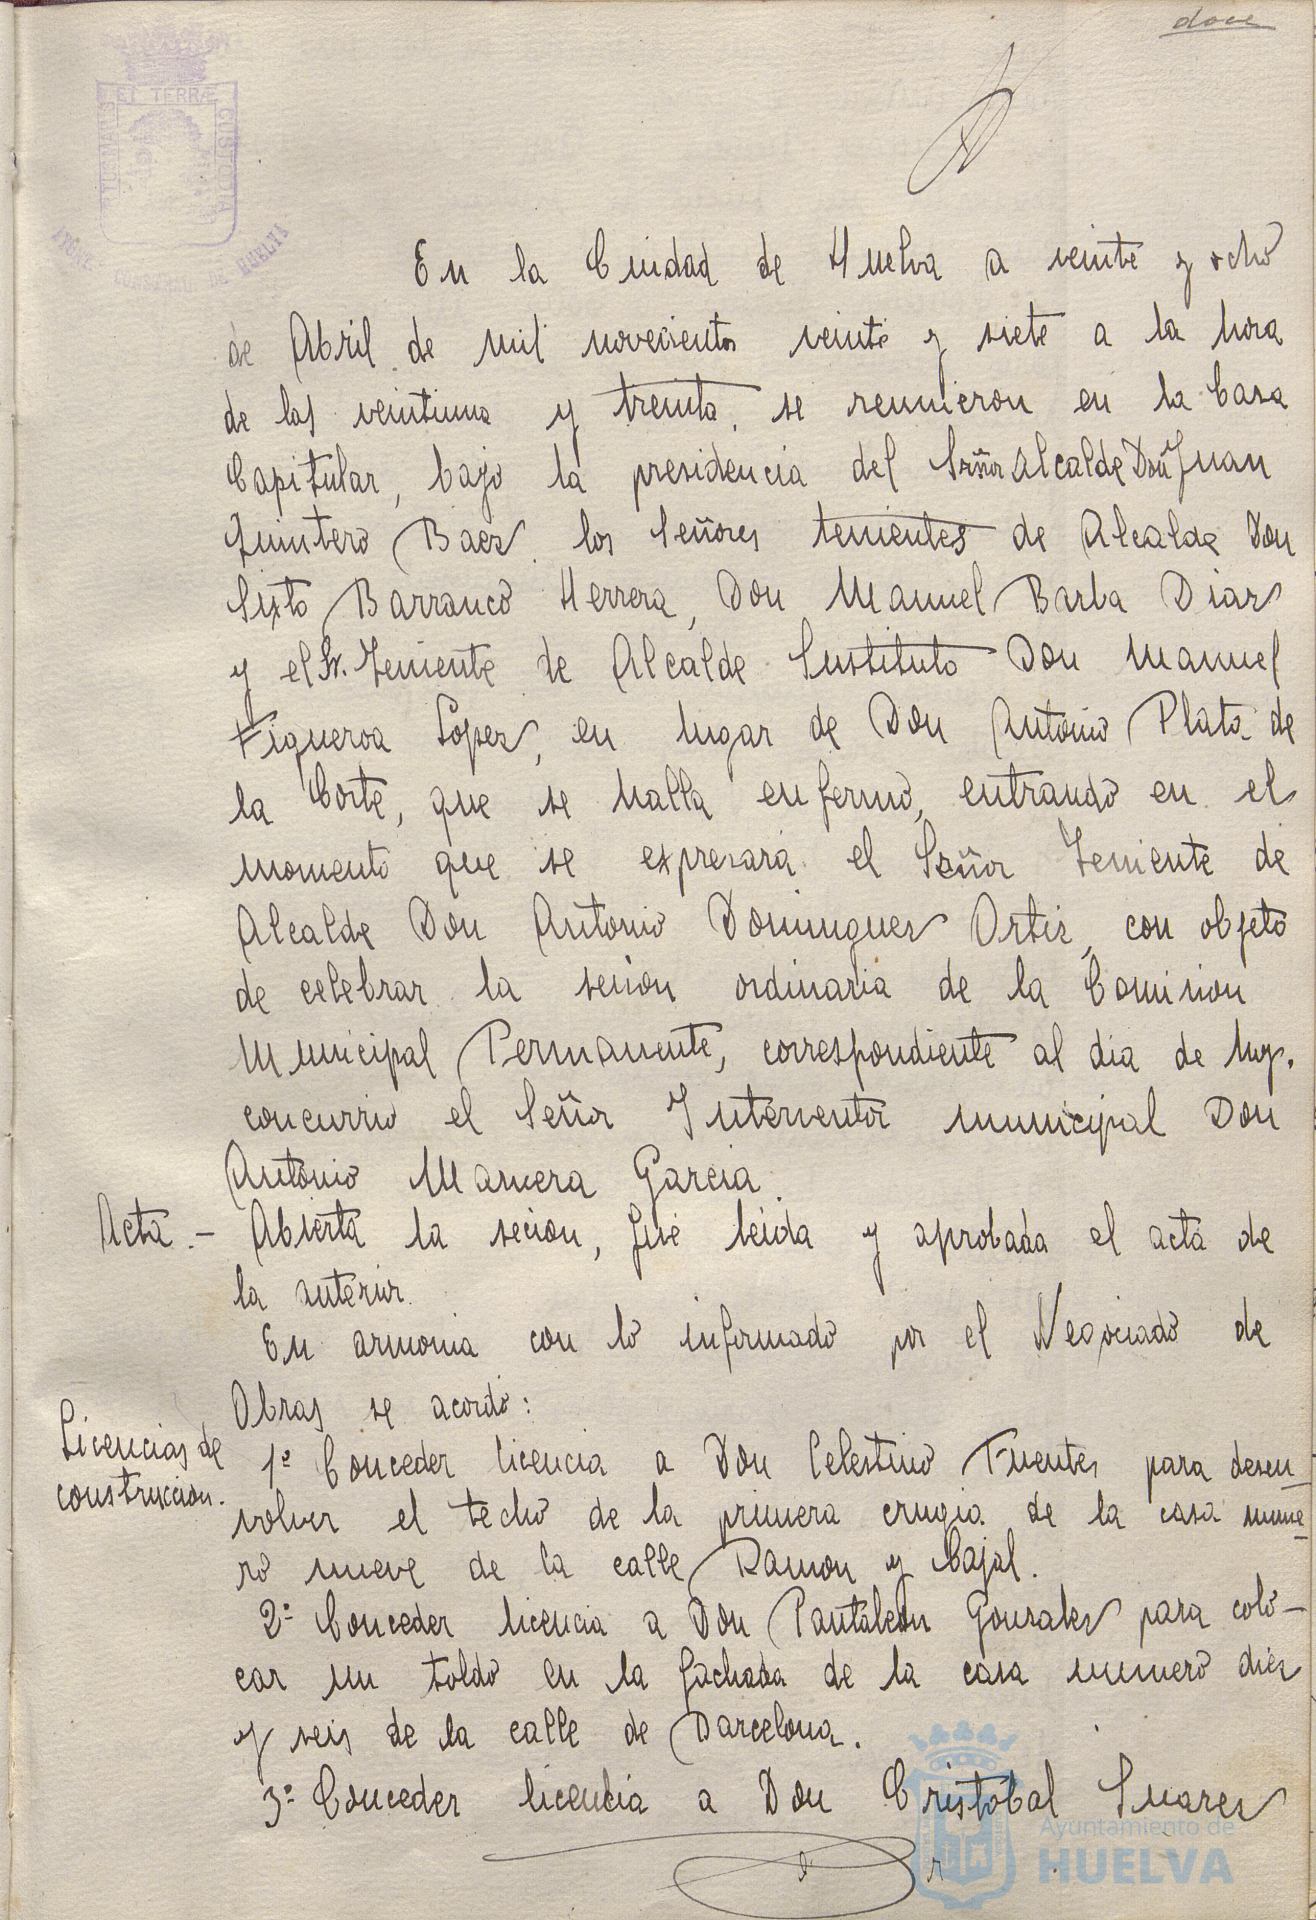 doce
PORTUS MARIS ET TERRÆ CUSTODIA
AYUNT. CONSTNAL. DE HUELVA
En la Cuidad de Huelva a veinte y ocho
de Abril de mil novecientos veinte y siete a la hora
de las veintiuna y treinta, se reunieron en la Casa
Capitular, bajo la presidencia del Señor Alcalde Don Juan
Quintero Baez los Señores tenientes de Alcalde Don
Sixto Barranco Herrera, Don Manuel Barba Diaz
y el Sr. Teniente de Alcalde Sustituto Don Manuel
Figueroa Lopez, en lugar de Don Antonio Plata de
la Corte, que se halla enfermo, entrando en el
momento que se expresará el Señor Teniente de
Alcalde Don Antonio Dominguez Ortiz, con objeto
de celebrar la sesion ordinaria de la Comision
Municipal Permanente, correspondiente al dia de hoy.
concurrio el Señor Interventor municipal Don
Antonio Marvera Garcia.
Acta.- Abierta la secion, fué leida y aprobada el acta de
la anterior.
En armonia con lo informado por el Negociado de
Obras se acordó:
Licencias de
construccion.
1º Conceder licencia a Don Celestino Fuentes para desen-
volver el techo de la primera crugia de la casa nume-
ro nueve de la calle Ramon y Cajal.
2º Conceder licencia a Don Pantaleon Gonzalez para colo-
car un toldo en la fachada de la casa numero diez
y seis de la calle de Barcelona.
3º Conceder licencia a Don Cristóbal Suarez
Ayuntamiento de
HUELVA